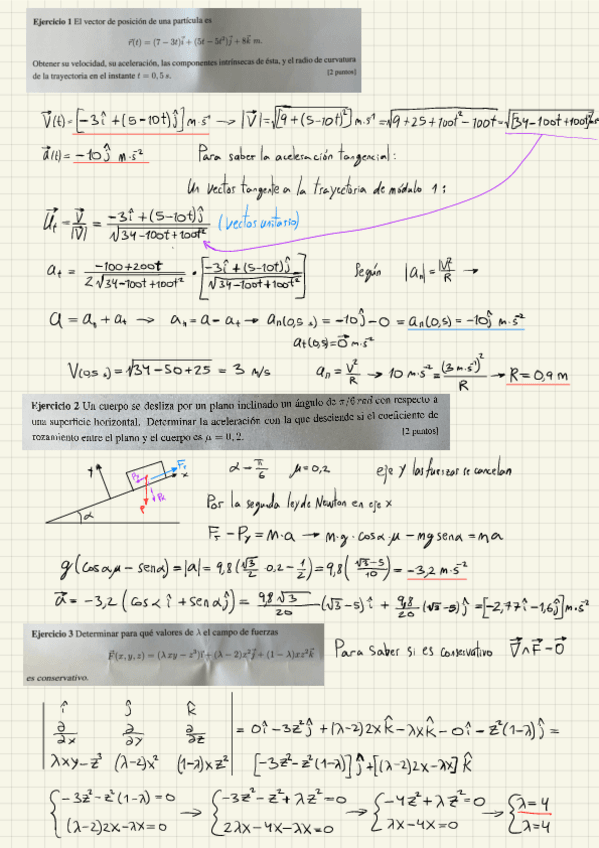 Ejercicio 1 El vector de posición de una partícula es
r⃗(t) = (7 − 3t)i⃗ + (5t − 5t²)j⃗ + 8k⃗ m.
Obtener su velocidad, su aceleración, las componentes intrínsecas de ésta, y el radio de curvatura
de la trayectoria en el instante t = 0,5 s. [2 puntos]
V⃗(t) = [−3î + (5−10t)ĵ] m·s⁻¹ → |V⃗| = √[9 + (5−10t)²] m·s⁻¹ = √9+25+100t²−100t = √[34−100t+100t²] m·s⁻¹
a⃗(t) = −10ĵ m·s⁻² Para saber la aceleración tangencial:
Un vector tangente a la trayectoria de módulo 1:
U⃗t = V⃗/|V⃗| = (−3î + (5−10t)ĵ)/√34−100t+100t² (vector unitario)
at = (−100+200t)/(2√34−100t+100t²) · [(−3î + (5−10t)ĵ)/√34−100t+100t²] Según |an| = |V|²/R →
a = an + at → an = a − at → an(0,5 s) = −10ĵ − 0 = an(0,5) = −10ĵ m·s⁻²
at(0,5) = 0⃗ m·s⁻²
V(0,5 s) = √34−50+25 = 3 m/s an = V²/R → 10 m·s⁻² = (3 m·s⁻¹)²/R → R = 0,9 m
Ejercicio 2 Un cuerpo se desliza por un plano inclinado un ángulo de π/6 rad con respecto a
una superficie horizontal. Determinar la aceleración con la que desciende si el coeficiente de
rozamiento entre el plano y el cuerpo es μ = 0,2. [2 puntos]
y Fr x P α
α − π/6 μ = 0,2 eje y las fuerzas se cancelan
Por la segunda ley de Newton en eje x
Fr − Py = m·a → m·g·cosα·μ − mg senα = ma
g(cosα μ − senα) = |a| = 9,8(√3/2 · 0,2 − 1/2) = 9,8((√3−5)/10) = −3,2 m·s⁻²
a⃗ = −3,2(cosα î + senα ĵ) = 9,8√3/20 (√3−5)î + 9,8/20 (√3−5)ĵ = [−2,77î −1,6ĵ] m·s⁻²
Ejercicio 3 Determinar para qué valores de λ el campo de fuerzas
F⃗(x, y, z) = (λxy − z³)i⃗ + (λ − 2)x²j⃗ + (1 − λ)xz²k⃗
es conservativo.
Para saber si es conservativo ∇⃗∧F⃗ = 0⃗
î ĵ k̂
∂/∂x ∂/∂y ∂/∂z = 0î − 3z²ĵ + (λ−2)2x k̂ − λx k̂ − 0î − z²(1−λ)ĵ =
λxy−z³ (λ−2)x² (1−λ)xz² [−3z²−z²(1−λ)]ĵ + [(λ−2)2x−λx]k̂
{−3z²−z²(1−λ)=0 → {−3z²−z²+λz²=0 → {−4z²+λz²=0 → {λ=4
(λ−2)2x−λx=0 2λx−4x−λx=0 λx−4x=0 λ=4